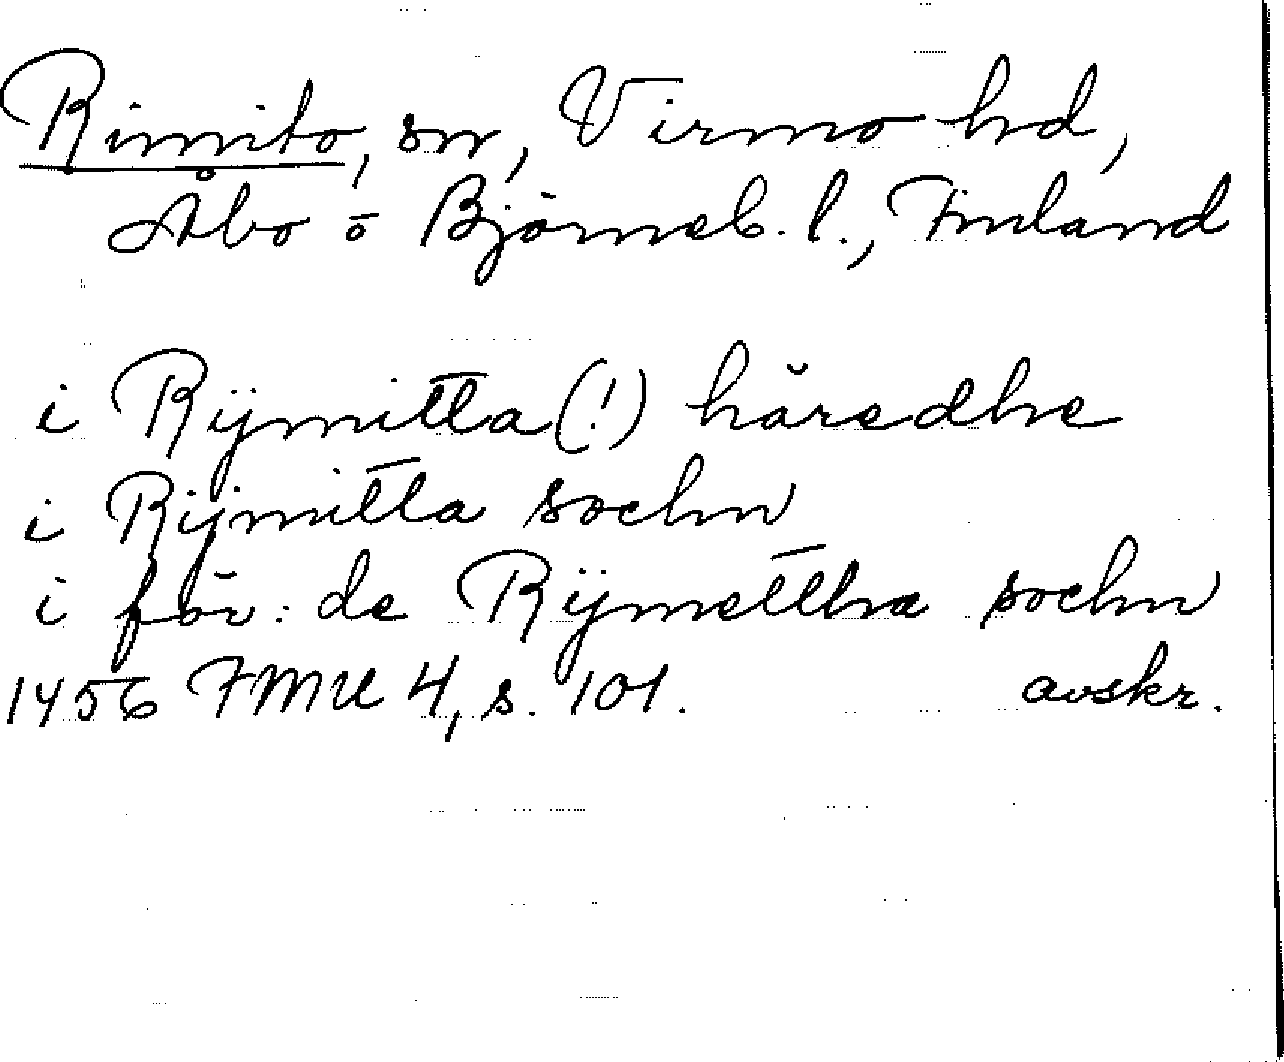 Rimito, sn, Virmo hd,
Åbo o Björneb. l., Finland
i Rÿmitta (!) häredhe
i Rÿmitta sochn
i för: de Rÿmettha sochn
1456 FMU 4, s. 101. avskr.